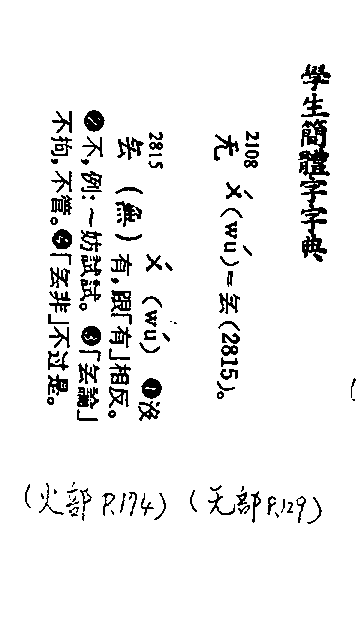 學生簡體字字典
2108
无 ㄨˊ (wú)=㷀(2815)。
2815
㷀(無) ㄨˊ (wú) ❶沒
有,跟「有」相反。
❷不,例:~妨試試。❸「㷀論」
不拘,不管。❹「㷀非」不过是。
(火部P.174) (无部P.129)